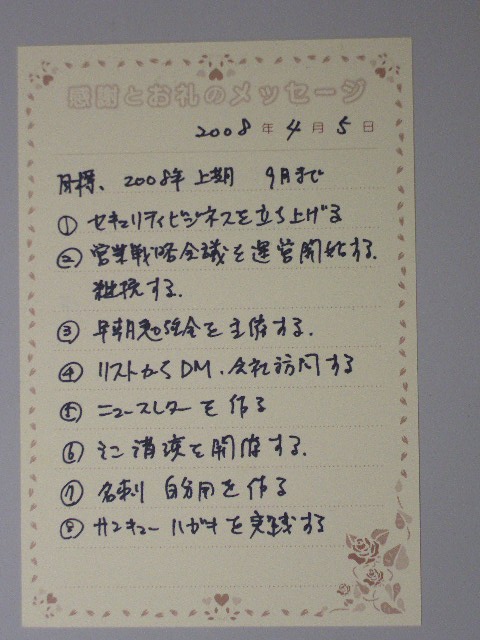 感謝とお礼のメッセージ
2008年4月5日
目標、2008年上期 9月まで
① セキュリティビジネスを立ち上げる
② 営業戦略会議を運営開始する.
する.
③ 早朝勉強会を主催する.
④ リストからDM、会社訪問する
⑤ ニュースレターを作る
⑥ ミニ講演を開催する.
⑦ 名刺 自分用を作る
⑧ サンキューハガキを実践する